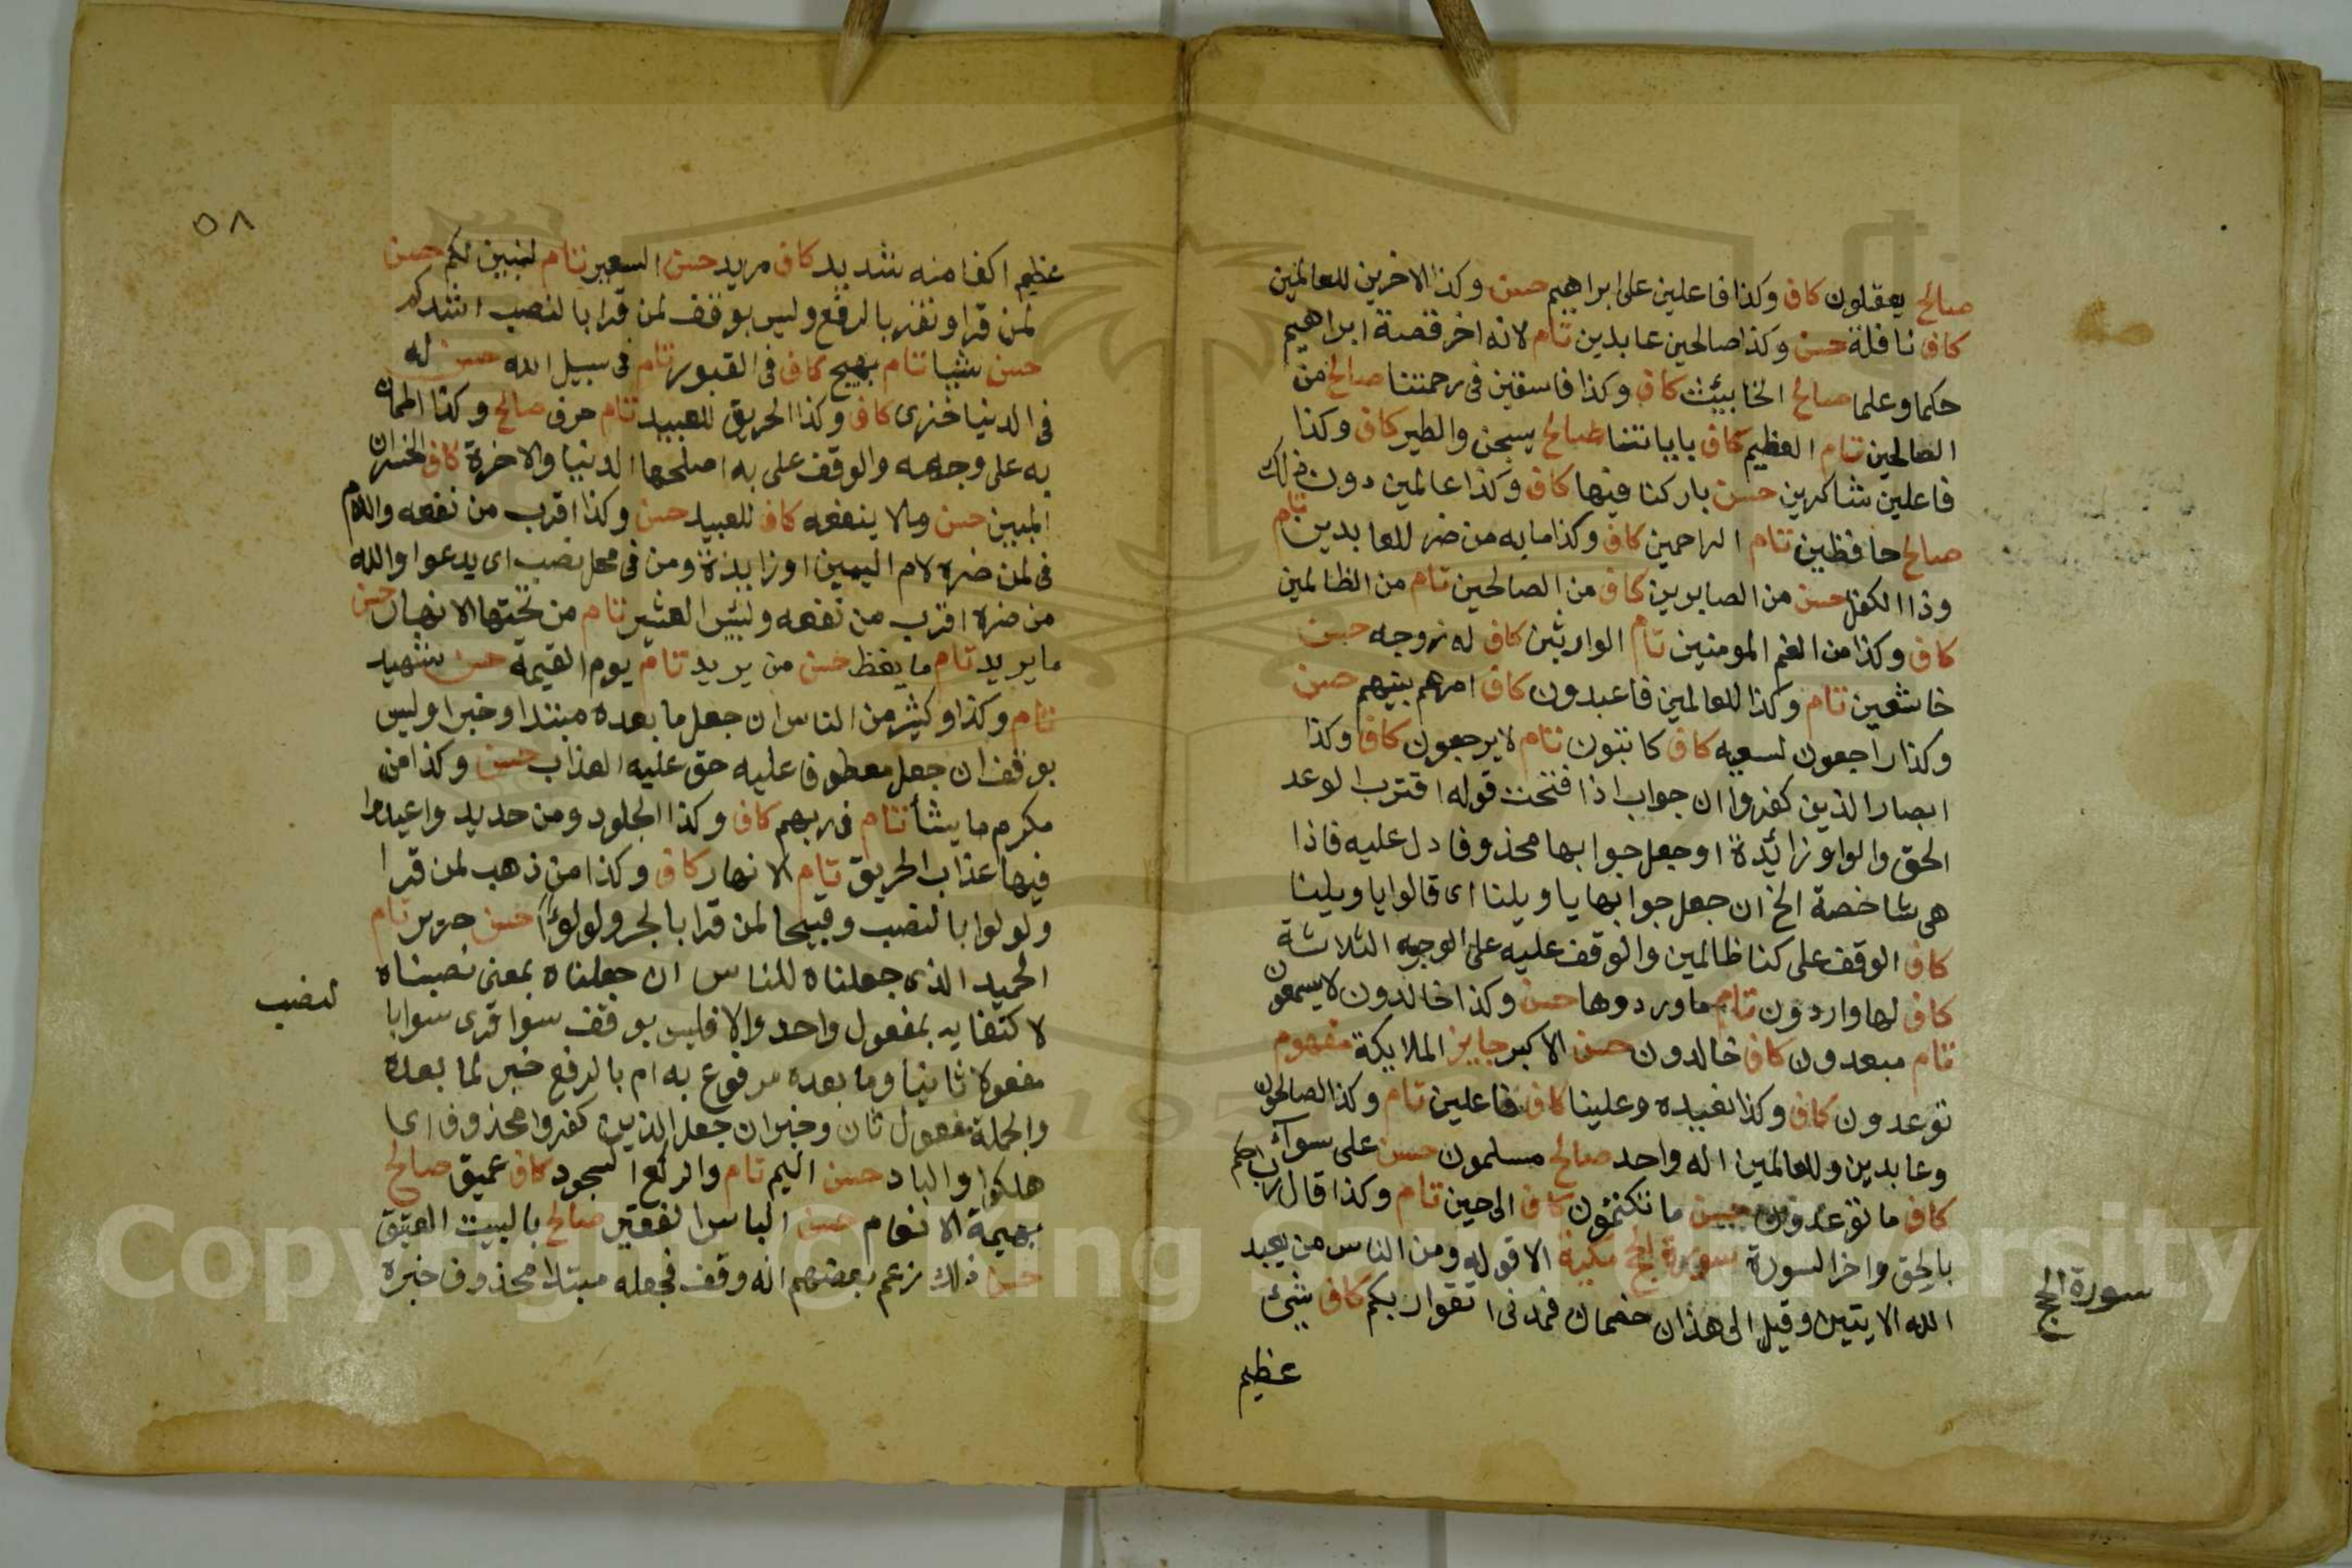 صالح يعقلون كاف وكذا فاعلين على ابراهيم حسن وكذا الاخرين للعالمين
كاف نافلة حسن وكذا صالحين عابدين تام لانه اخر قصة ابراهيم
حكما وعلما صالح الخبائث كاف وكذا فاسقين فى رحمتنا صالح من
الصالحين تام العظيم كاف باياتنا صالح يسبحن والطير كاف وكذا
فاعلين شاكرين حسن باركنا فيها كاف وكذا عالمين دون ذلك
صالح حافظين تام الراحمين كاف وكذا ما به من ضر للعابدين تام
وذا الكفل حسن من الصابرين كاف من الصالحين تام من الظالمين
كاف وكذا من الغم المومنين تام الوارثين كاف له زوجه حسن
خاشعين تام وكذا للعالمين فاعبدون كاف امرهم بينهم حسن
وكذا راجعون لسعيه كاف كاتبون تام لا يرجعون كاف وكذا
ابصار الذين كفروا ان جواب اذا فتحت قوله اقترب الوعد
الحق والواو زائدة او جعل جوابها محذوفا دل عليه فاذا
هى شاخصة الخ ان جعل جوابها يا ويلنا اى قالوا يا ويلنا
كاف الوقف على كنا ظالمين والوقف عليه على الوجوه الثلاثة
كاف لها واردون تام ما وردوها حسن وكذا خالدون لا يسمعون
تام مبعدون كاف خالدون حسن الاكبر جايز الملايكة مفهوم
توعدون كاف وكذا نعيده وعلينا كاف فاعلين تام وكذا الصالحون
وعابدين وللعالمين اله واحد صالح مسلمون حسن على سوآء
كاف ما توعدون حسن ما تكتمون كاف الى حين تام وكذا قال رب احكم
بالحق واخر السورة سورة الحج مكية الا قوله ومن الناس من يعبد
الله الايتين وقيل الى هذان خصمان فمدنى اتقوا ربكم كاف شئ
عظيم
سورة الحج
٥٨
عظيم اكفا منه شديد كاف مريد حسن السعير تام لنبين لكم حسن
لمن قرا ونقر بالرفع وليس بوقف لمن قرا بالنصب اشدكم
حسن شيبا تام بهيج كاف فى القبور تام فى سبيل الله حسن له
فى الدنيا خزى كاف وكذا الحريق للعبيد تام حرف صالح وكذا اطمان
به على وجهه والوقف على به اصلحها الدنيا والاخرة كاف الخسران
المبين حسن وما لا ينفعه كاف البعيد حسن وكذا اقرب من نفعه واللام
فى لمن ضره لام اليمين او زايدة ومن فى محل نصب اى يدعوا والله
من ضره اقرب من نفعه ولبئس العشير تام من تحتها الانهار حسن
ما يريد تام ما يغيظ حسن من يريد تام يوم القيمة حسن شهيد
تام وكذا وكثير من الناس ان جعل ما بعده مبتدا وخبرا وليس
بوقف ان جعل معطوفا عليه حق عليه العذاب حسن وكذا من
مكرم ما يشأ تام فى ربهم كاف وكذا الجلود ومن حديد واعيدوا
فيها عذاب الحريق تام الانهار كاف وكذا من ذهب لمن قرا
ولولوا بالنصب وقبيحا لمن قرا بالجر ولولوءا حسن حرير تام
الحميد الذى جعلناه للناس ان جعلناه بمعنى نصبناه
لاكتفايه بمفعول واحد والا فليس بوقف سوا قرى سوا با
لنصب
مفعولا ثانيا وما بعده مرفوع به ام بالرفع خبر لما بعده
والجملة مفعول ثان وخبر ان جعل الذين كفروا محذوف اى
هلكوا والباد حسن اليم تام والركع السجود كاف عميق صالح
بهيمة الانعام حسن الباس الفقير صالح بالبيت العتيق
حسن ذلك زعم بعضهم انه وقف فجعله مبتدا محذوف خبره
Copyright © King Saud University